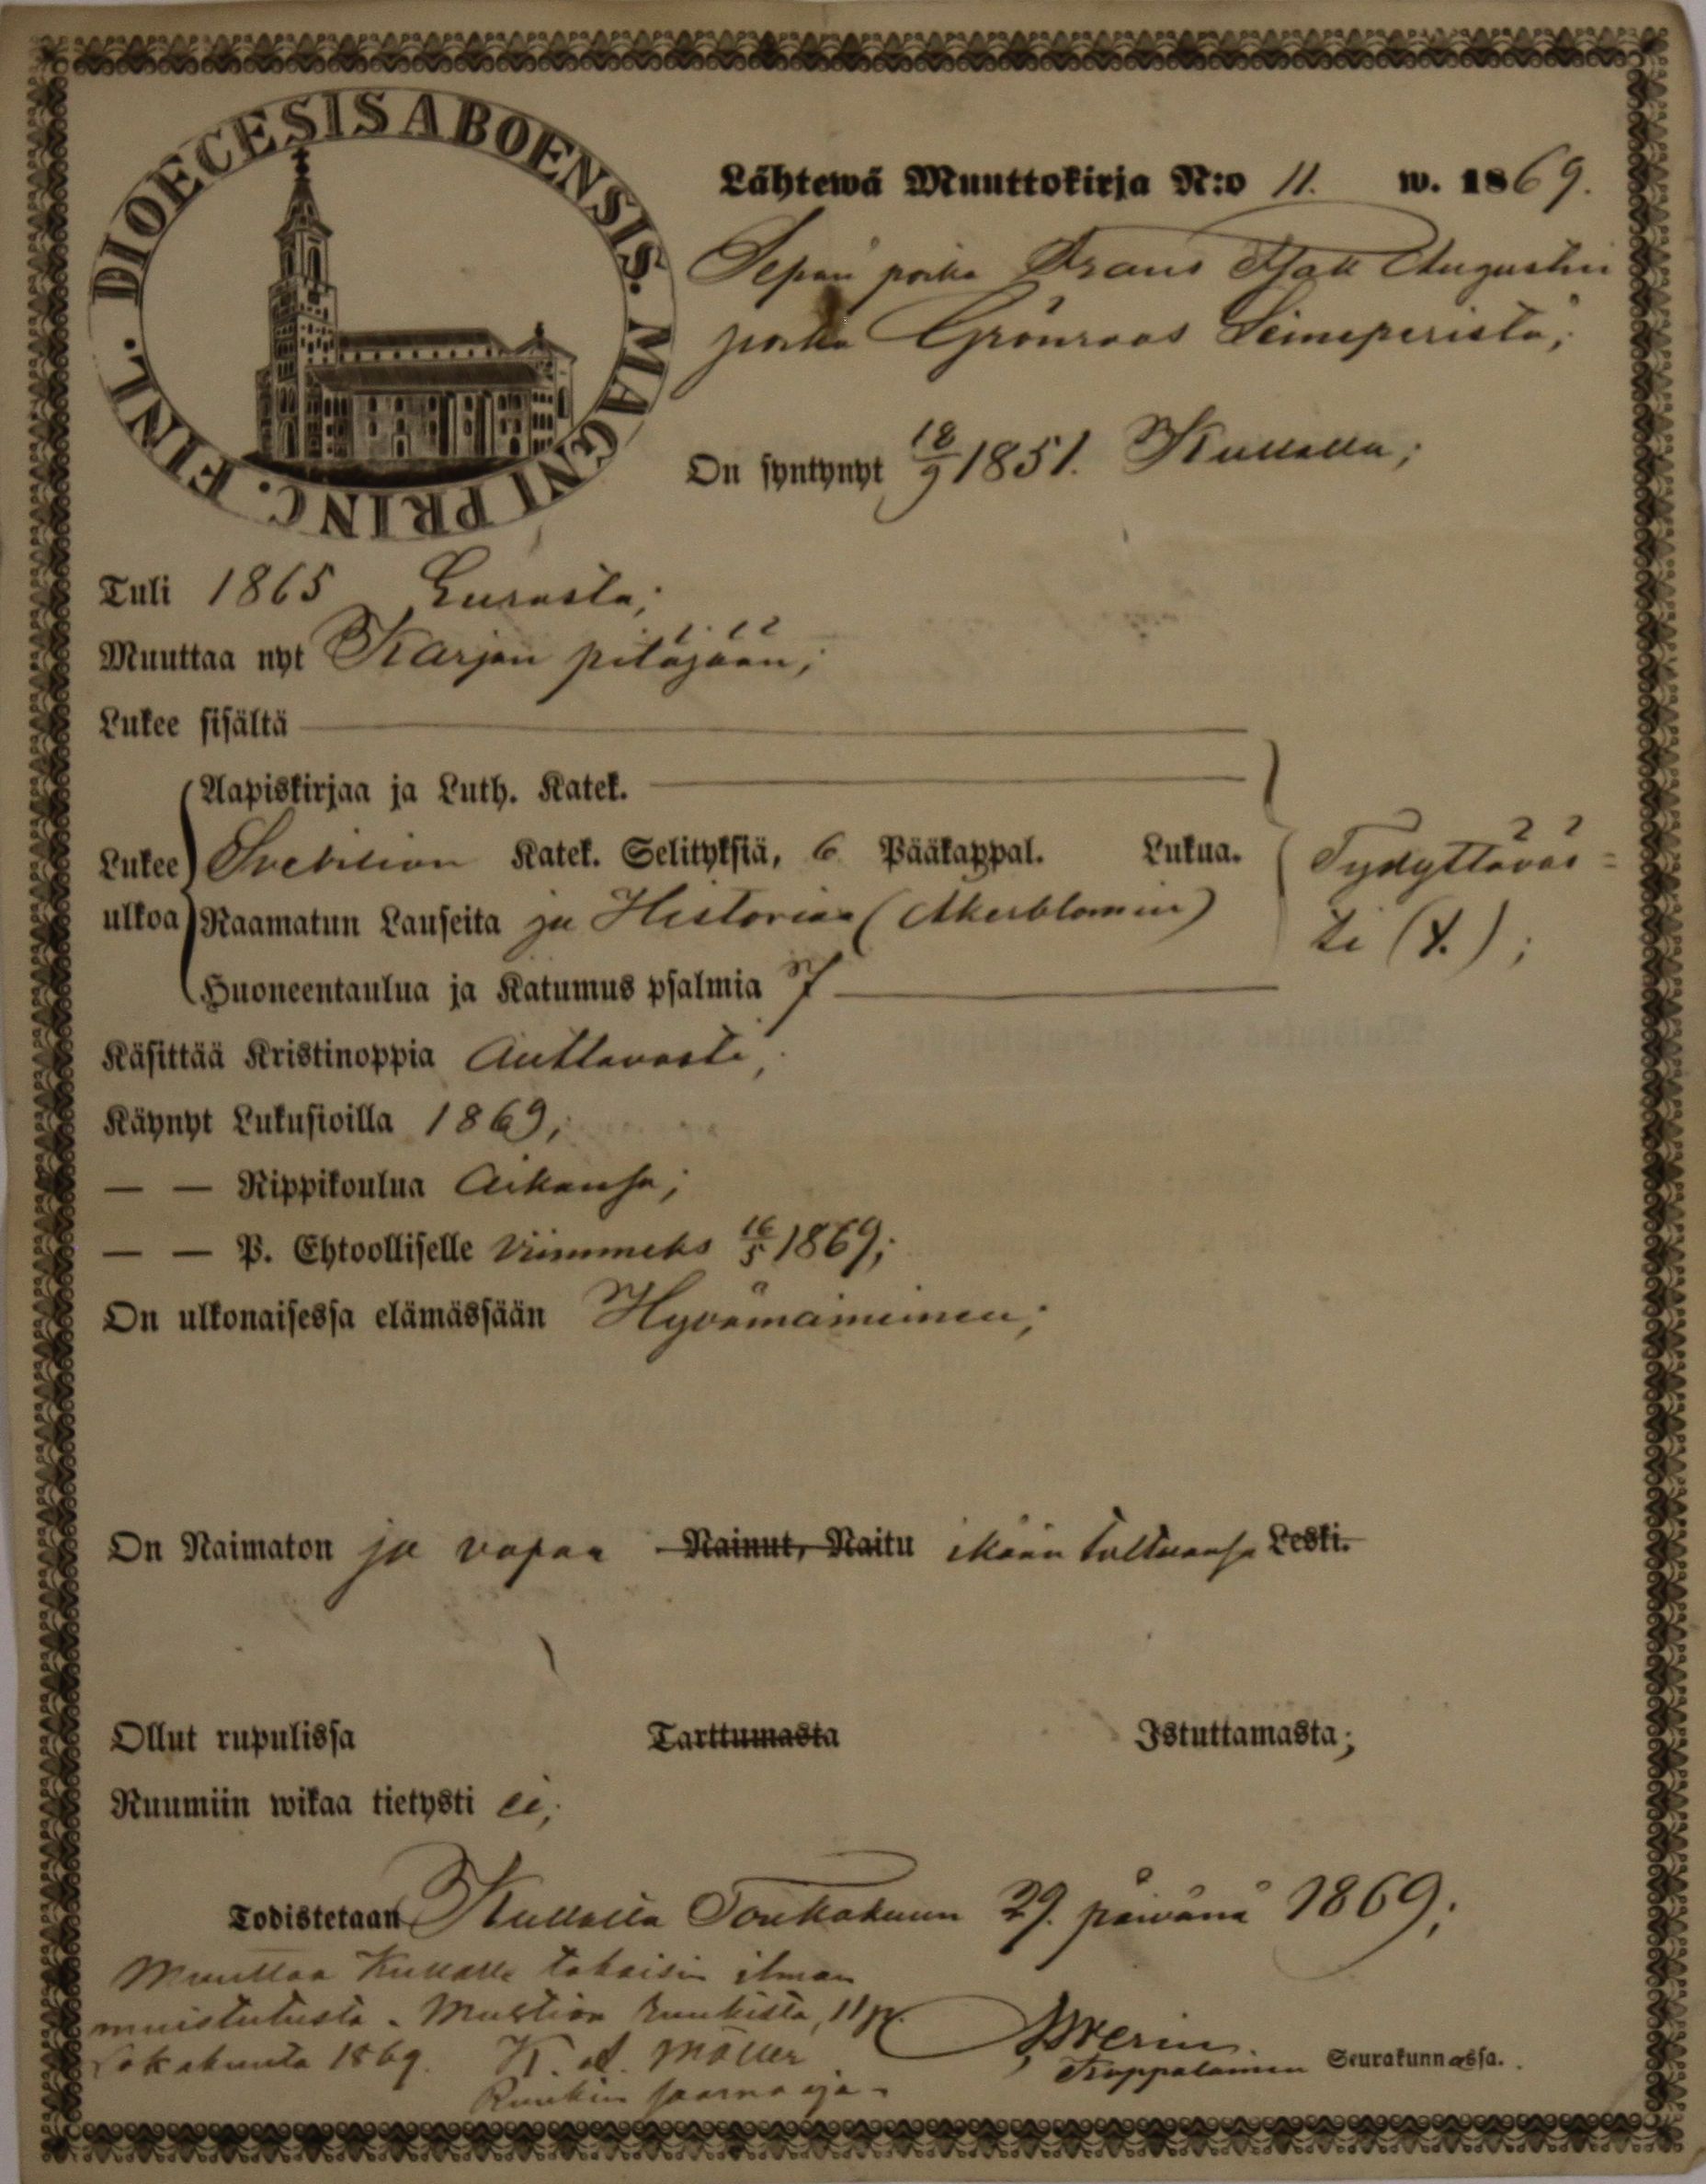 DIOECESIS ABOENSIS. MAGNI PRINC. FINL.
Lähtewä Muuttokirja N:o 11. w. 1869.
Sepän poika Frans Isak Augustin
poika Grönroos Leineperistä;
On syntynyt 18/9 1851. Kullalla;
Tuli 1865 Eurasta;
Muuttaa nyt Karjan pitäjään;
Lukee sisältä
Aapiskirjaa ja Luth. Katek.
Lukee Svebilion Katek. Selityksiä, 6 Pääkappal. Lukua. Tydyttäväs=
ulkoa Raamatun Lauseita ja Historiaa (Åkerblomin) ti (t.);
Huoneentaulua ja Katumus psalmia 7
Käsittää Kristinoppia Auttavasti;
Käynyt Lukusioilla 1869;
— — Rippikoulua Aikansa;
— — P. Ehtoolliselle Viimmeks 16/5 1869;
On ulkonaisessa elämässään Hyvämaineinen;
On Naimaton ja vapaa Nainut, Naitu ikään tultuansa Leski.
Ollut rupulissa Tarttumasta Istuttamasta;
Ruumiin wikaa tietysti ei;
Todistetaan Kullalla Toukokuun 29. päivänä 1869;
Muuttaa Kullalle takaisin ilman
muistutusta. Mustion Ruukista, 11 p.
Lokakuuta 1869. K. A. Möller
Ruukin saarnaaja.
Kappalainen Seurakunnassa.